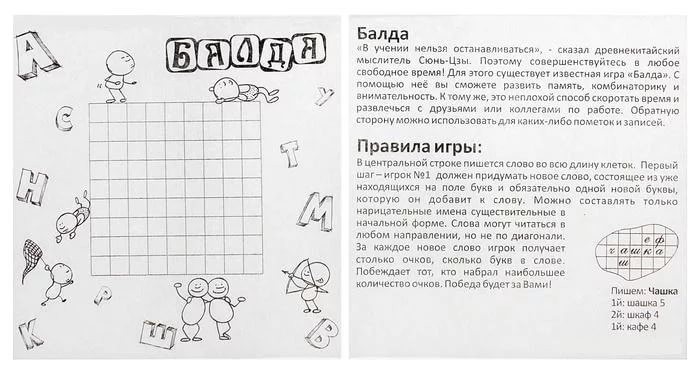 А
БАЛДА
С
У
Т
Н
М
Р
К
Ш
В
Балда
«В учении нельзя останавливаться», - сказал древнекитайский
мыслитель Сюнь-Цзы. Поэтому совершенствуйтесь в любое
свободное время! Для этого существует известная игра «Балда». С
помощью неё вы сможете развить память, комбинаторику и
внимательность. К тому же, это неплохой способ скоротать время и
развлечся с друзьями или коллегами по работе. Обратную
сторону можно использовать для каких-либо пометок и записей.
Правила игры:
В центральной строке пишется слово во всю длину клеток. Первый
шаг – игрок №1 должен придумать новое слово, состоящее из уже
находящихся на поле букв и обязательно одной новой буквы,
которую он добавит к слову. Можно составлять только
нарицательные имена существительные в
начальной форме. Слова могут читаться в
любом направлении, но не по диагонали.
За каждое новое слово игрок получает
столько очков, сколько букв в слове.
Побеждает тот, кто набрал наибольшее
количество очков. Победа будет за Вами!
е ф
ч а ш к а
ш
Пишем: Чашка
1й: шашка 5
2й: шкаф 4
1й: кафе 4